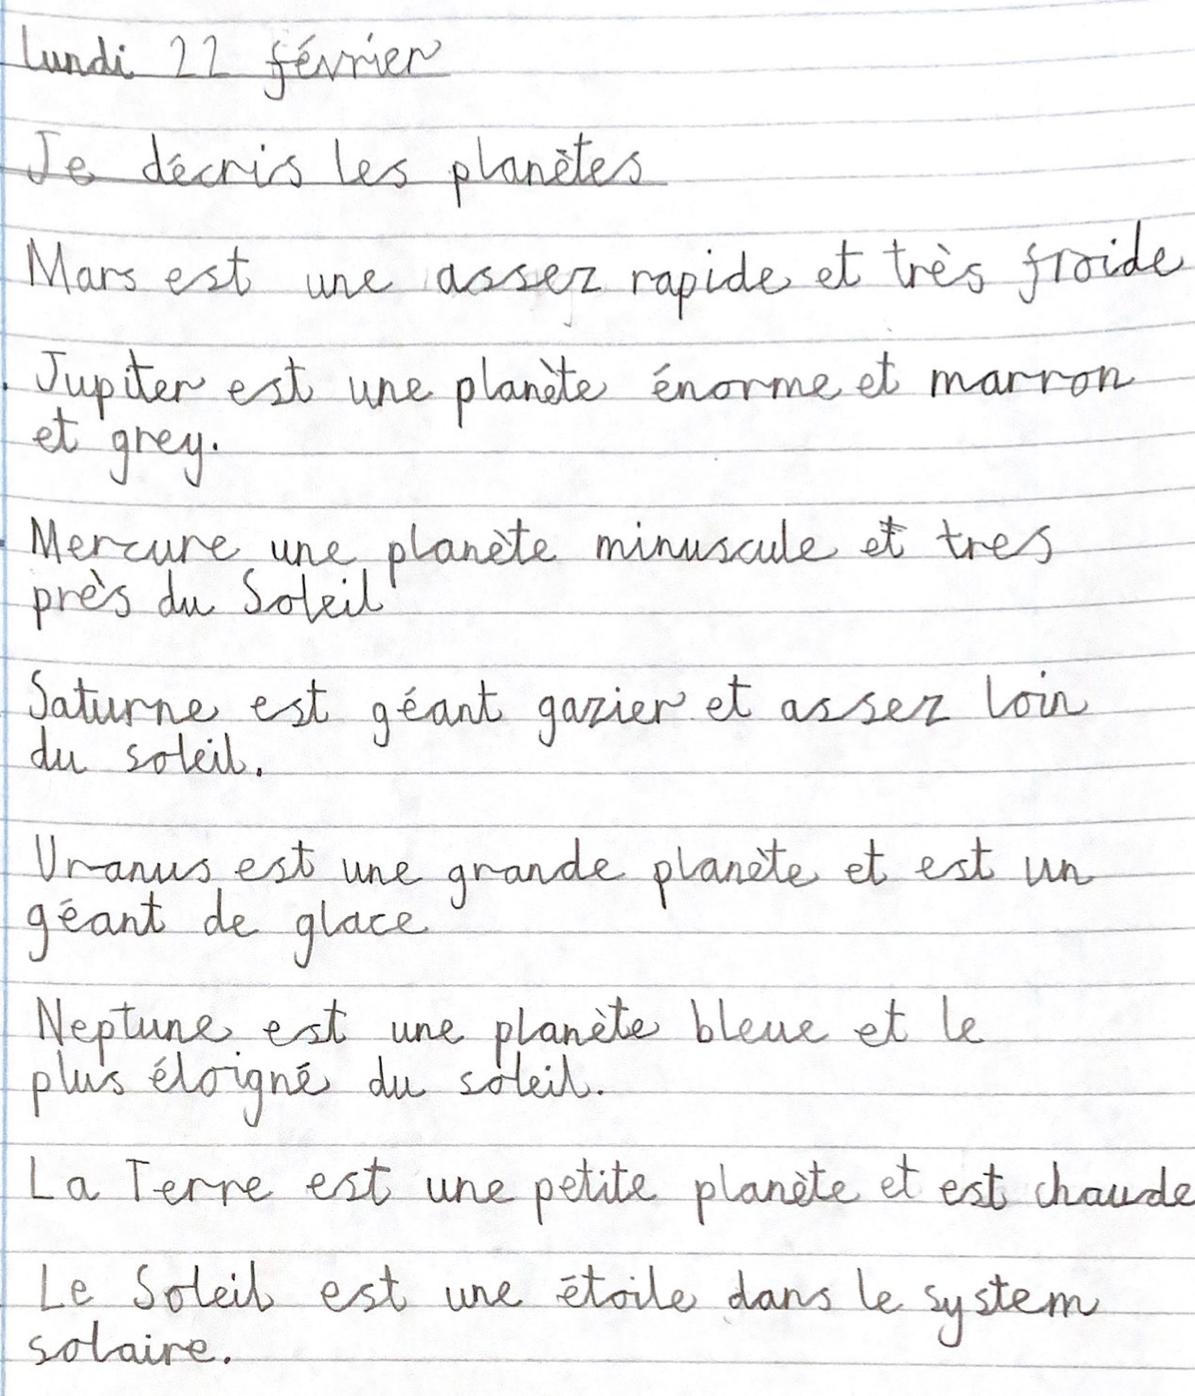 Lundi 22 février
Je décris les planètes
Mars est une assez rapide et très froide
Jupiter est une planète énorme et marron
et grey.
Mercure une planète minuscule et tres
près du Soleil
Saturne est géant gazier et assez loin
du soleil.
Uranus est une grande planète et est un
géant de glace
Neptune est une planète bleue et le
plus éloigné du soleil.
La Terre est une petite planète et est chaude
Le Soleil est une étoile dans le system
solaire.